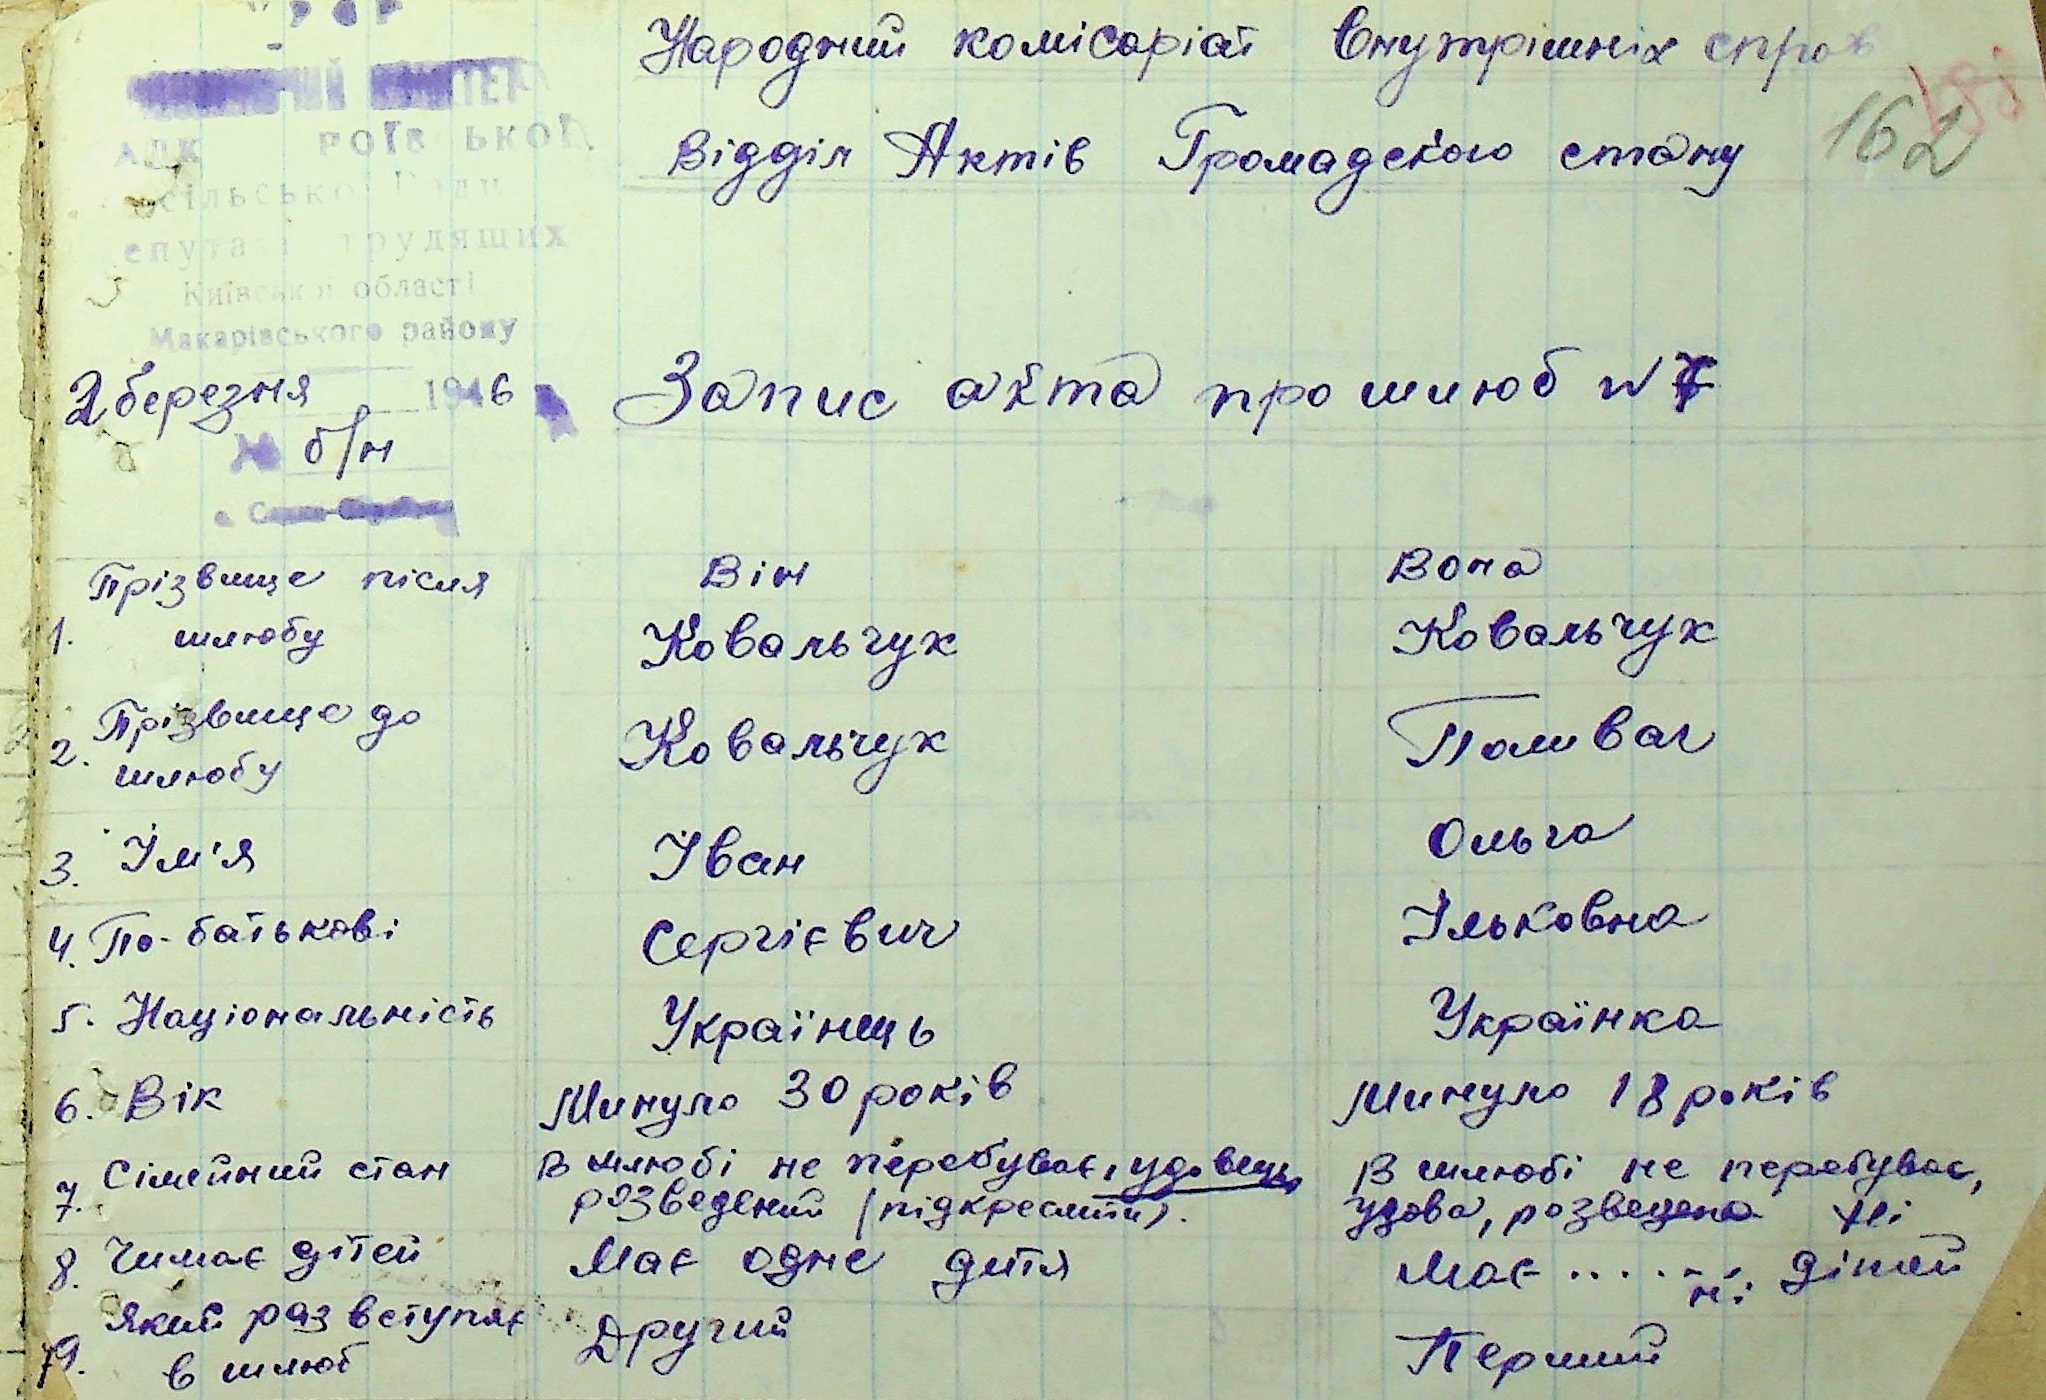 УРСР
РОЇВСЬКОЇ
сільської Ради
депутатів трудящих
Київської області
Макарівського району
2 березня 1946
№ б/н
Народний комісаріат внутрішніх справ
162
Відділ Актів Громадського стану
Запис акта про шлюб N
Він Вона
1. Прізвище після шлюбу Ковальчук Ковальчук
2. Прізвище до шлюбу Ковальчук Поливач
3. Їм'я Їван Ольга
4. По-батькові Сергієвич Їльковна
5. Національність Українець Українка
6. Вік Минуло 30 років Минуло 18 років
7. Сімейний стан В шлюбі не перебуває, удовець, В шлюбі не перебуває,
розведений (підкреслити). удова, розведена Ні
8. Чи має дітей Має одне дитя Має ........ дітей
ні
9. Який раз вступає Другий Перший
в шлюб